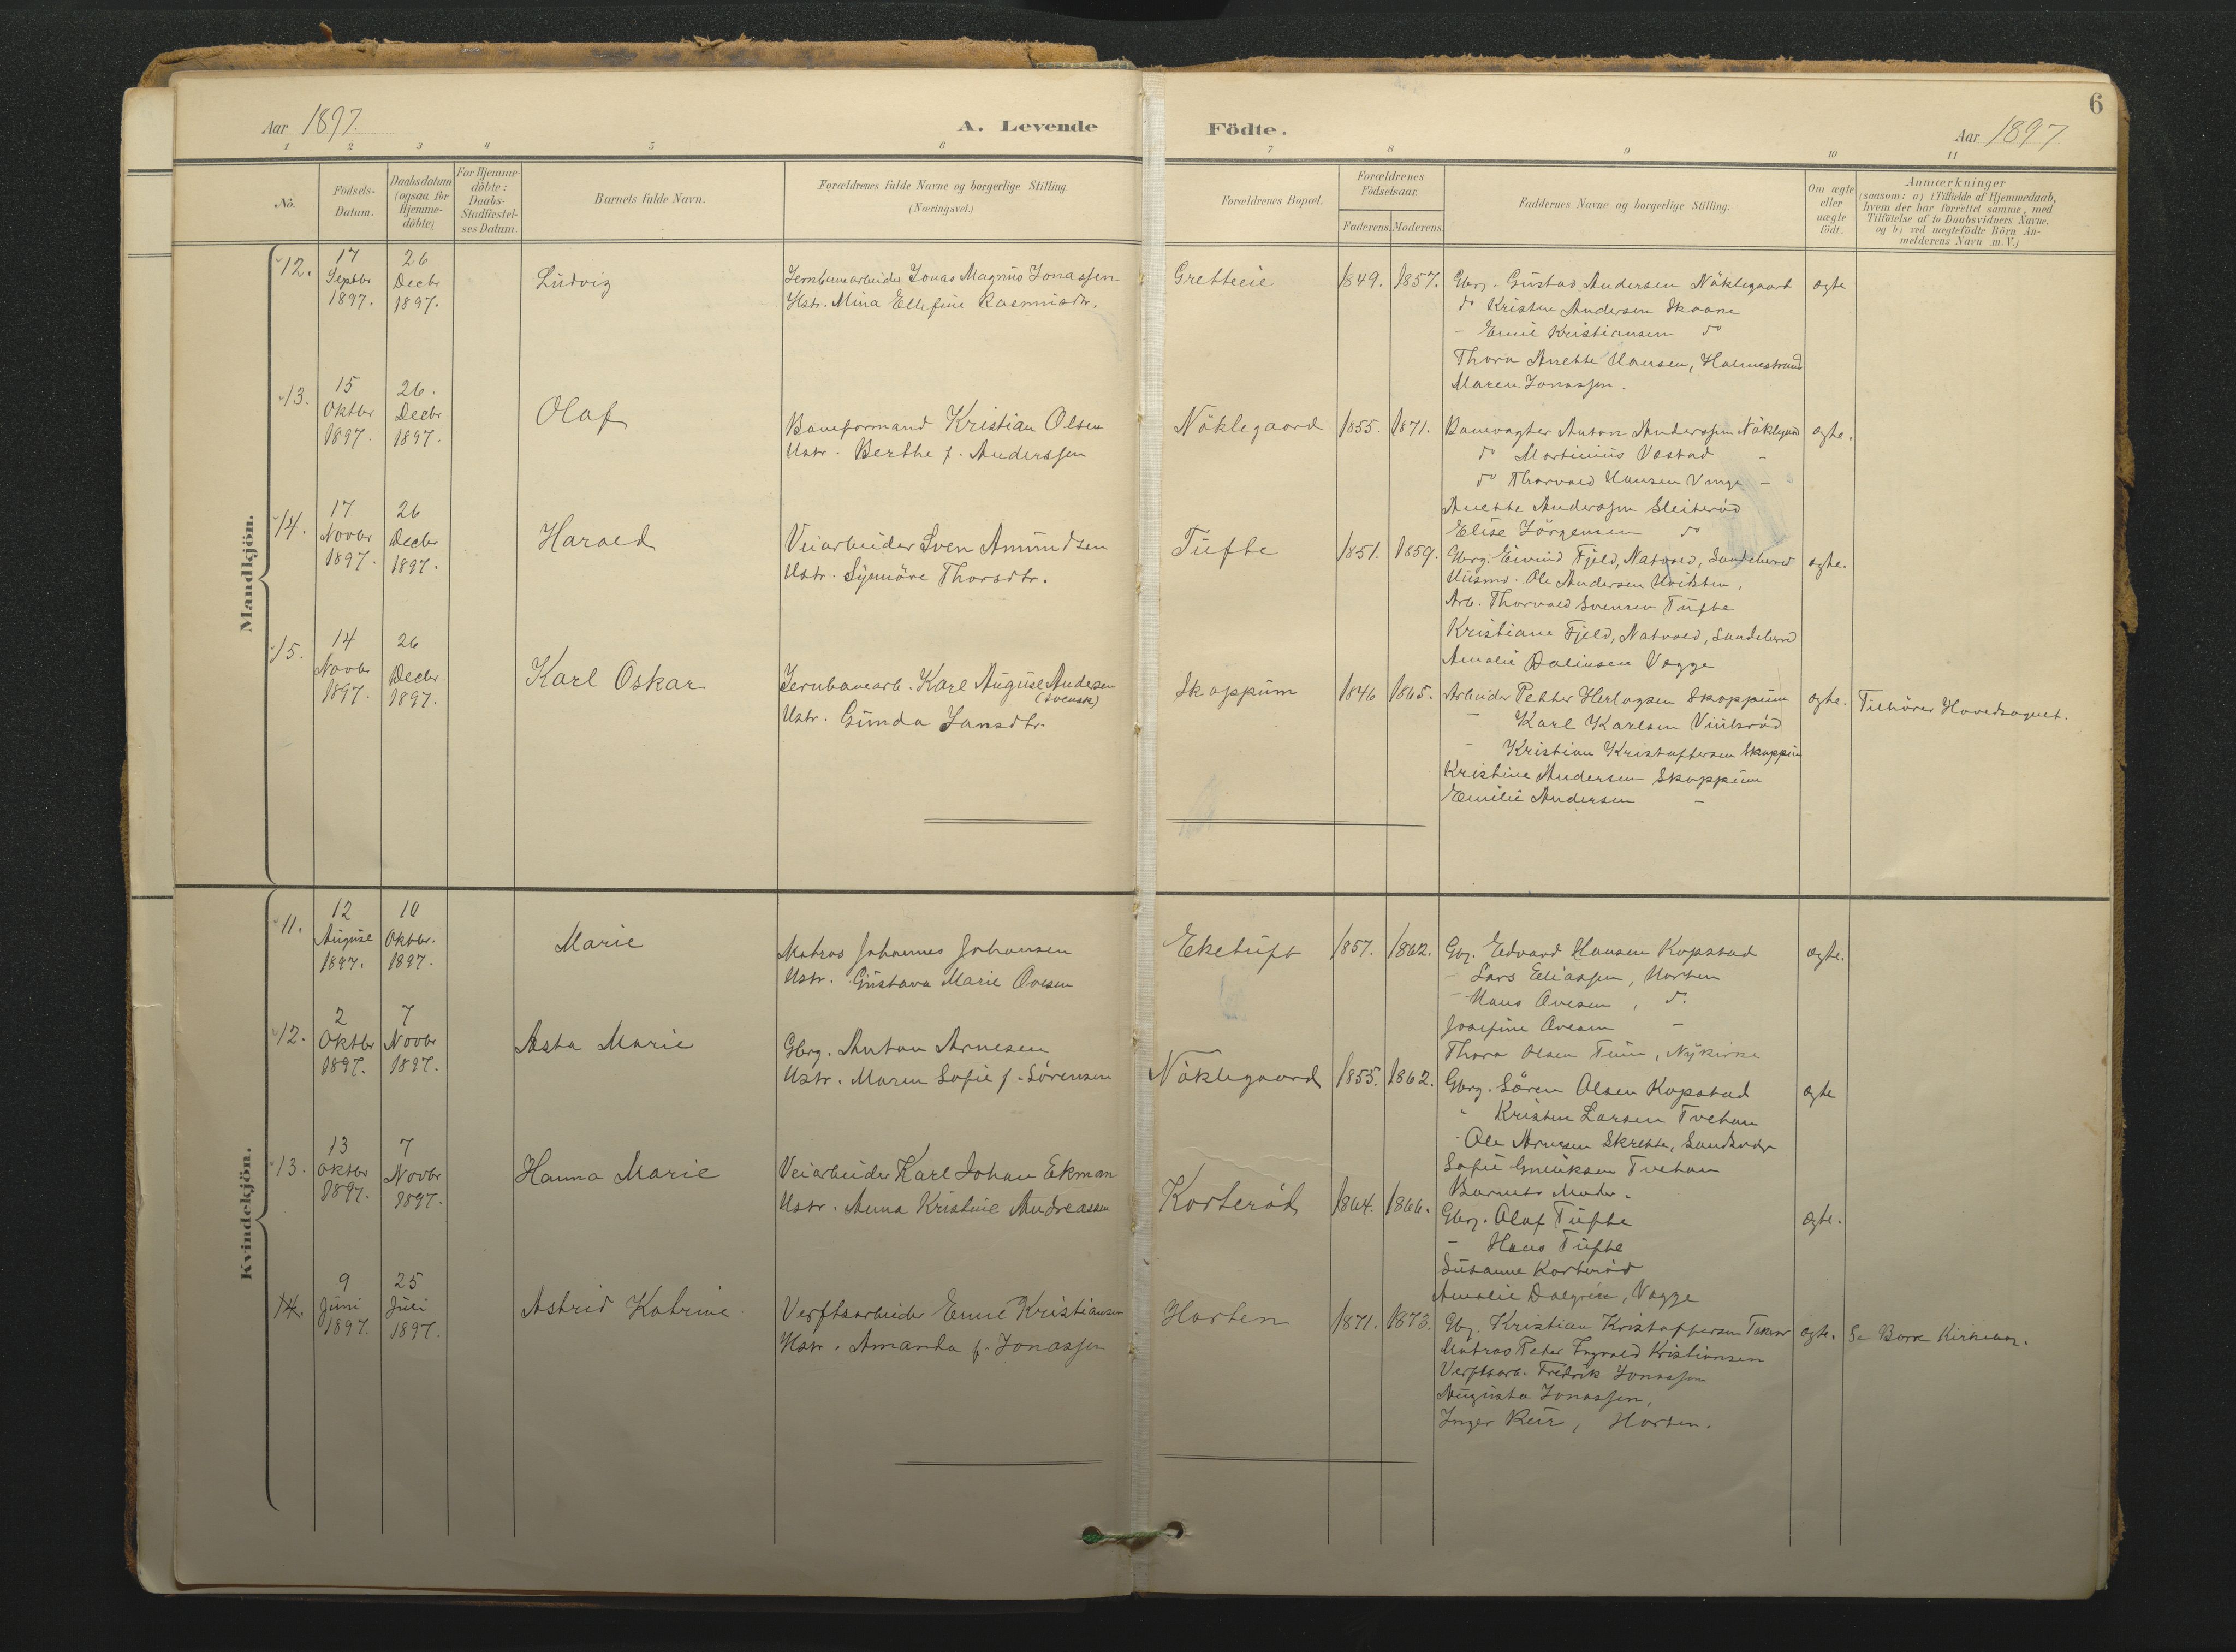 6
Aar 1897.
A. Levende Födte.
Aar 1897.
1 2 3 4 5 6 7 8 9 10 11
No.
Födsels-Datum.
Daabsdatum (ogsaa for Hjemme-döbte)
For Hjemme-döbte: Daabs-Stadfæstel-ses Datum.
Barnets fulde Navn.
Forældrenes fulde Navne og borgerlige Stilling. (Næringsvei.)
Forældrenes Bopæl.
Forældrenes Födselsaar.
Faderens. Moderens.
Faddernes Navne og borgerlige Stilling.
Om ægte eller uægte födt.
Anmærkninger
(saasom: a) i Tilfælde af Hjemmedaab,
hvem der har forrettet samme, med
Tilföielse af to Daabsvidners Navne.
og b) ved uægtefödte Börn An-
melderens Navn m. V.)
Mandkjön.
12.
17 Septbr 1897.
26 Decbr 1897.
Ludvig
Jernbanearbeider Jonas Magnus Jonassen
Hstr. Mina Ellefine Rasmusdtr.
Gretteeie
1849. 1857.
Gbrg. Gustav Andersen Nöklegaard
do Kristen Andersen Skaane
- Emil Kristiansen do
Thora Anette Hansen, Holmestrand
Maren Jonassen.
ægte
13.
15 Oktbr 1897.
26. Decbr 1897.
Olaf
Baneformand Kristian Olsen
Hstr. Berthe f. Anderssen
Nöklegaard
1855. 1871.
Banevagter Anton Anderssen Nöklegaard
do Martinius Vestad -
do Thorvald Hansen Vinge -
Anette Anderssen Sleiteröd
Elise Jörgensen do
ægte.
14.
17 Novbr 1897.
26 Decbr 1897.
Harald
Veiarbeider Sven Amundsen
Hstr. Synnöve Thorsdtr.
Tufte
1851. 1859.
Gbrg. Eivind Fjeld, Natvald, Sandeherred
Husmd. Ole Andersen
Arb. Thorvald Svensen Tufte
Kristiane Fjeld, Natvald, Sandeherred
Amalie Dalinsen Vegge
ægte.
15.
14 Novbr 1897.
26 Decbr 1897.
Karl Oskar
Jernbanearb. Karl August Andersen
(svensk)
Hstr. Gunda Jansdtr.
Skoppum
1846 1865.
Arbeider Petter Herlogsen Skoppum
- Karl Karlsen Viulsröd
- Kristian Kristoffersen Skoppum
Kristine Andersen Skoppum
Emilie Andersen -
ægte.
Tilhörer Hovedsognet.
Kvindekjön.
11.
12 August 1897.
10 Oktbr. 1897.
Marie
Matros Johannes Johansen
Hstr. Gustava Marie Ovesen
Eketuft
1857. 1862.
Gbg. Edvard Hansen Kopstad
- Lars Eliassen, Horten
- Hans Ovesen, do.
Josefine Ovesen -
Thora Olsen Tuin, Nykirke
ægte.
12.
2 Oktbr 1897.
7 Novbr 1897.
Asta Marie
Gbrg. Anton Arnesen
Hstr. Maren Sofie f. Sörensen
Nöklegaard
1855. 1862.
Gbrg. Sören Olsen Kopstad
" Kristen Larsen Tveten
" Ole Arnesen Skrette, Sandsvær
Sofie Tveten
Barnets Moder.
ægte
13.
13 Oktbr 1897.
7 Novbr 1897.
Hanna Marie
Veiarbeider Karl Johan Ekman
Hstr. Anna Kristine Andreassen
Korteröd
1864. 1866.
Gbrg. Olaf Tufte
- Hans Tufte
Susanne Korteröd
Amalie Dalgren, Vegge
ægte.
14.
9 Juni 1897.
25 Juli 1897.
Astrid Katrine
Verftsarbeider Emil Kristiansen
Hstr. Amanda f. Jonassen
Horten
1871. 1873.
Gbg. Kristian Kristoffersen
Matros Peter Ingvald Kristiansen
Verftsarb. Fredrik Jonassen
Augusta Jonassen,
Inger Horten.
ægte.
Se Borre Kirkebog.